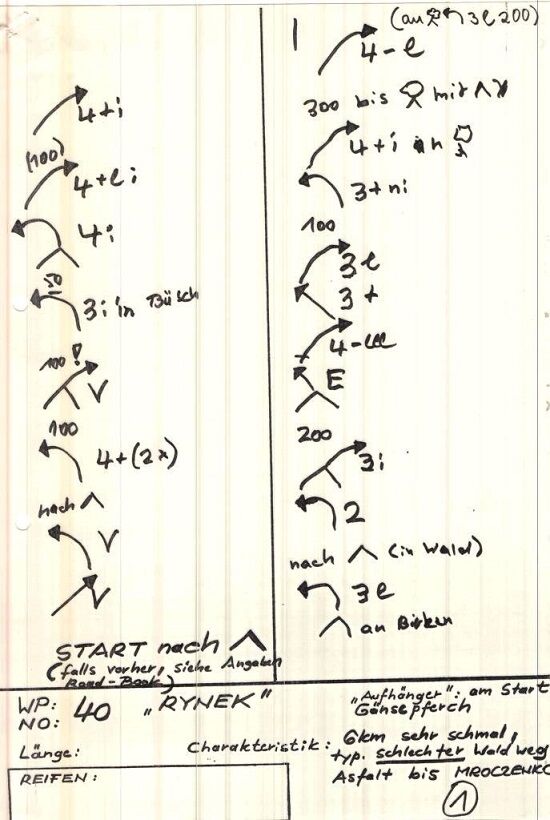 4+i
(100)
4+ei
4i
50
3i in Büsch
100 !
V
100
4+(2x)
nach
V
V
START nach
(falls vorher, siehe Angaben
Road-Book)
(an 3e 200)
4-e
300 bis mit
4+i
3+ni
100
3e
3+
4-eee
E
200
3i
2
nach (in Wald)
3e
an Birken
WP:
NO: 40 „RYNEK"
Länge:
REIFEN:
„Aufhänger": am Start
Gänsepferch
Charakteristik: 6km sehr schmal,
typ. schlechter Waldweg
Asfalt bis MROCZENKO
1